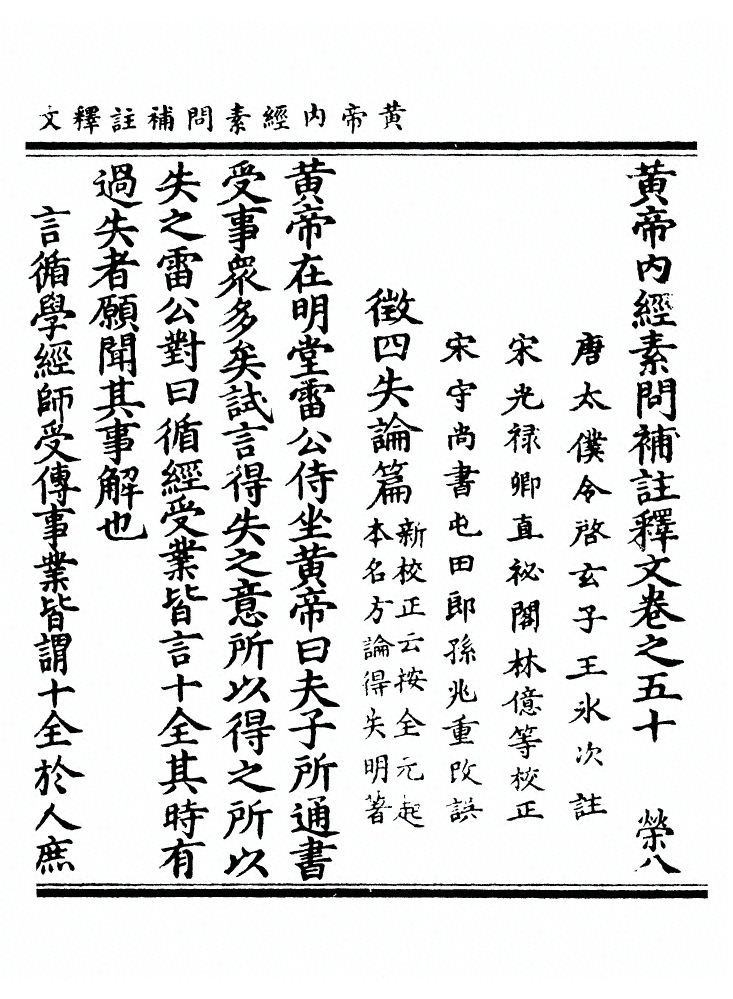 黄帝内經素問補註釋文
黄帝内經素問補註釋文卷之五十 榮八
唐太僕令啓玄子王氷次註
宋光禄卿直祕閣林億等校正
宋守尚書屯田郎孫兆重改誤
徵四失論篇新校正云按全元起
本名方論得失明著
黄帝在明堂雷公侍坐黄帝曰夫子所通書
受事衆多矣試言得失之意所以得之所以
失之雷公對曰循經受業皆言十全其時有
過失者願聞其事解也
言循學經師受傳事業皆謂十全於人庶